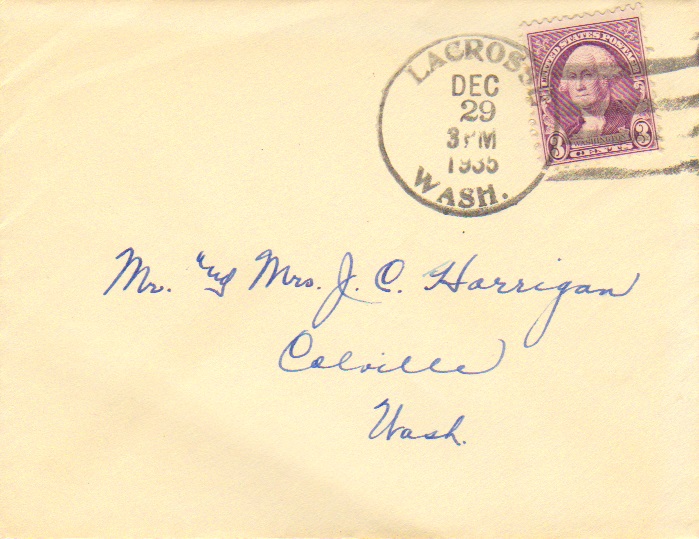 LACROSS
DEC
29
3 PM
1935
WASH.
UNITED STATES POSTAGE
3 WASHINGTON 3
CENTS
Mr. and Mrs. J. C. Harrigan
Colville
Wash.